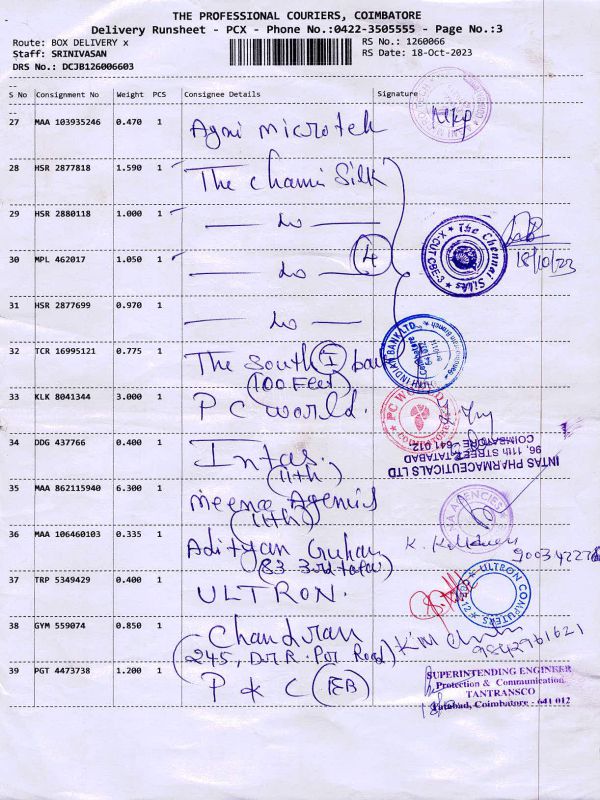 THE PROFESSIONAL COURIERS, COIMBATORE
Delivery Runsheet - PCX - Phone No.:0422-3505555 - Page No.:3
Route: BOX DELIVERY x
RS No.: 1260066
Staff: SRINIVASAN
RS Date: 18-Oct-2023
DRS No.: DCJB126006603
S No Consignment No Weight PCS Consignee Details Signature
27 MAA 103935246 0.470 1 Agni microtek
28 HSR 2877818 1.590 1 The chennai Silk
29 HSR 2880118 1.000 1 — do —
The Chennai Silks
18/10/23
30 MPL 462017 1.050 1 — do — 4
31 HSR 2877699 0.970 1 — do —
32 TCR 16995121 0.775 1 The South I bank
(100 Feet)
INDIAN BANK LTD
33 KLK 8041344 3.000 1 P C world.
PC WORLD
34 DDG 437766 0.400 1 Intas.
(11th)
INTAS PHARMACEUTICALS LTD
96, 11th STREET, TATABAD
COIMBATORE - 641 012.
35 MAA 862115940 6.300 1 meena Agencies
(11th)
36 MAA 106460103 0.335 1 Adityan Guhan
(83 3rd
37 TRP 5349429 0.400 1 ULTRON.
ULTRON COMPUTERS
38 GYM 559074 0.850 1 Chandran
(245, Road)
9842961621
39 PGT 4473738 1.200 1 P & C (EB)
SUPERINTENDING ENGINEER
Protection & Communication
TANTRANSCO
Tatabad, Coimbatore - 641 012